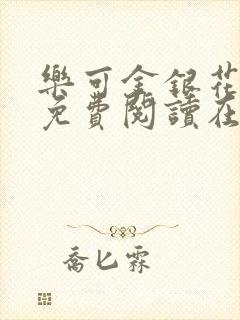 樂可金銀花
免費閱讀在
喬匕霖